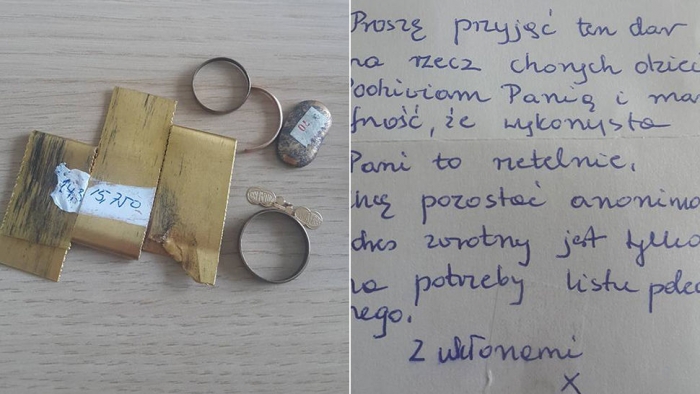 15,750
Proszę przyjąć ten dar
na rzecz chorych dzieci
Podziwiam Panią i ma
fność, że wykorzysta
Pani to rzetelnie.
hcę pozostać anonimo
dres zwrotny jest tylko
na potrzeby listu polec
nego.
Z ukłonami
X